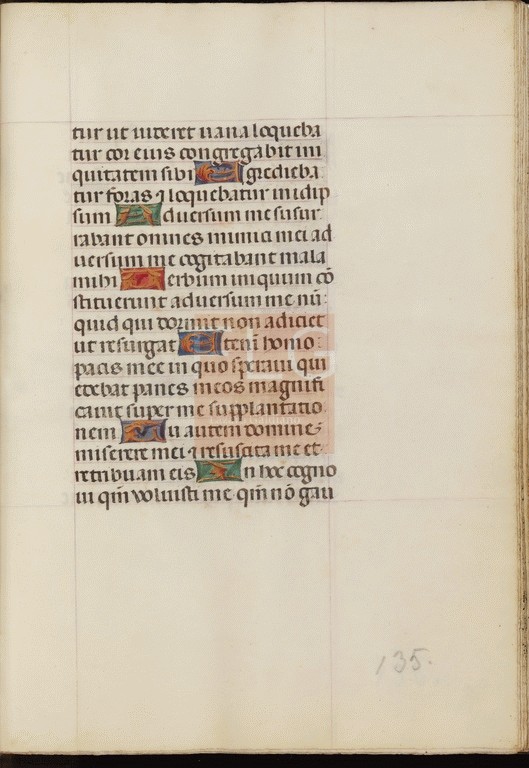 tur ut uideret uana loqueba
tur cor eius congregabit ini
quitatem sibi Egredieba
tur foras ⁊ loquebatur in idip
sum Aduersum me susur
rabant omnes inimici mei ad
uersum me cogitabant mala
mihi Verbum iniquum cō
stituerunt aduersum me nū
quid qui dormit non adiciet
ut resurgat Etenī homo
pacis mee in quo speraui qui
edebat panes meos magnifi
cauit super me supplantatio
nem Tu autem domine
miserere mei ⁊ resuscita me et
retribuam eis In hoc cogno
ui qm̄ voluisti me qm̄ nō gau
135.